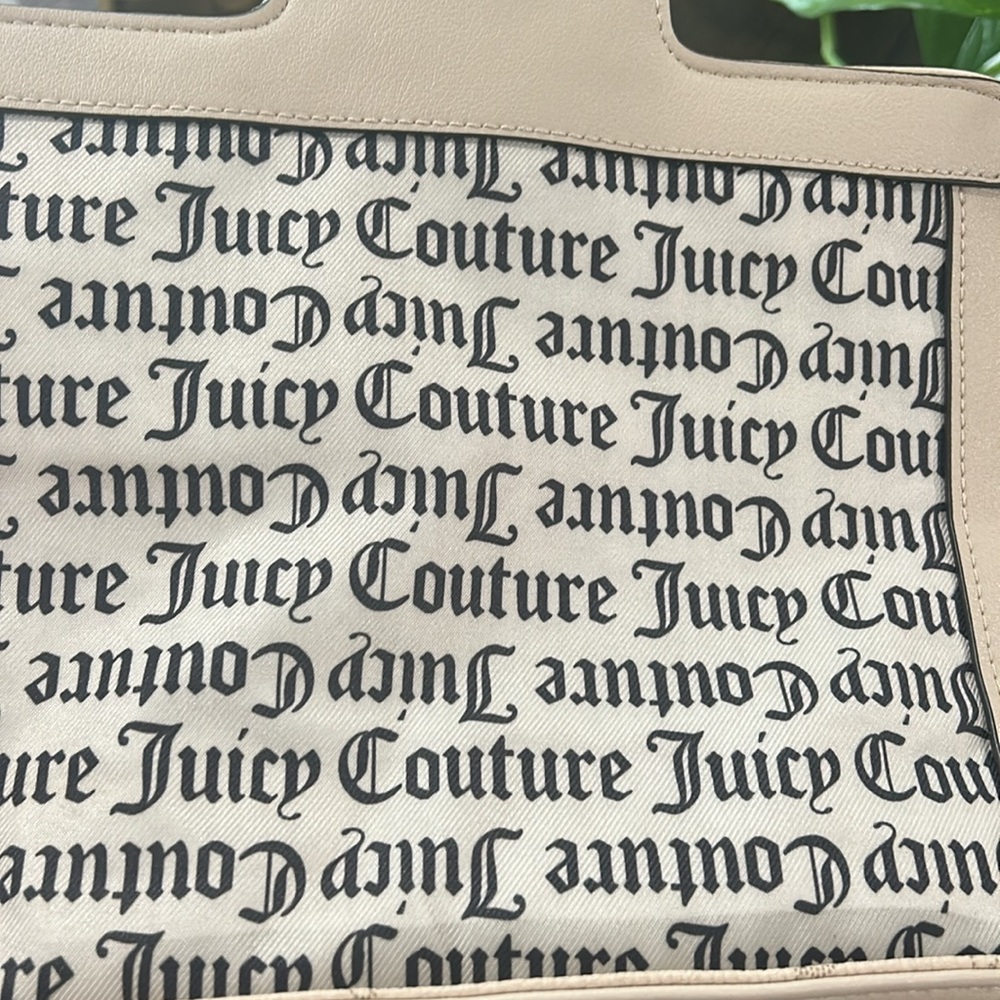 Juicy Couture Juicy Couture
ture Juicy Couture Juicy Cou
Juicy Couture Juicy Couture
ture Juicy Couture Juicy Cou
Juicy Couture Juicy Couture
ture Juicy Couture Juicy Cou
Juicy Couture Juicy Couture
ure Juicy Couture Juicy Cou
uicy Couture Juicy Couture
re Juicy Couture Juicy Co